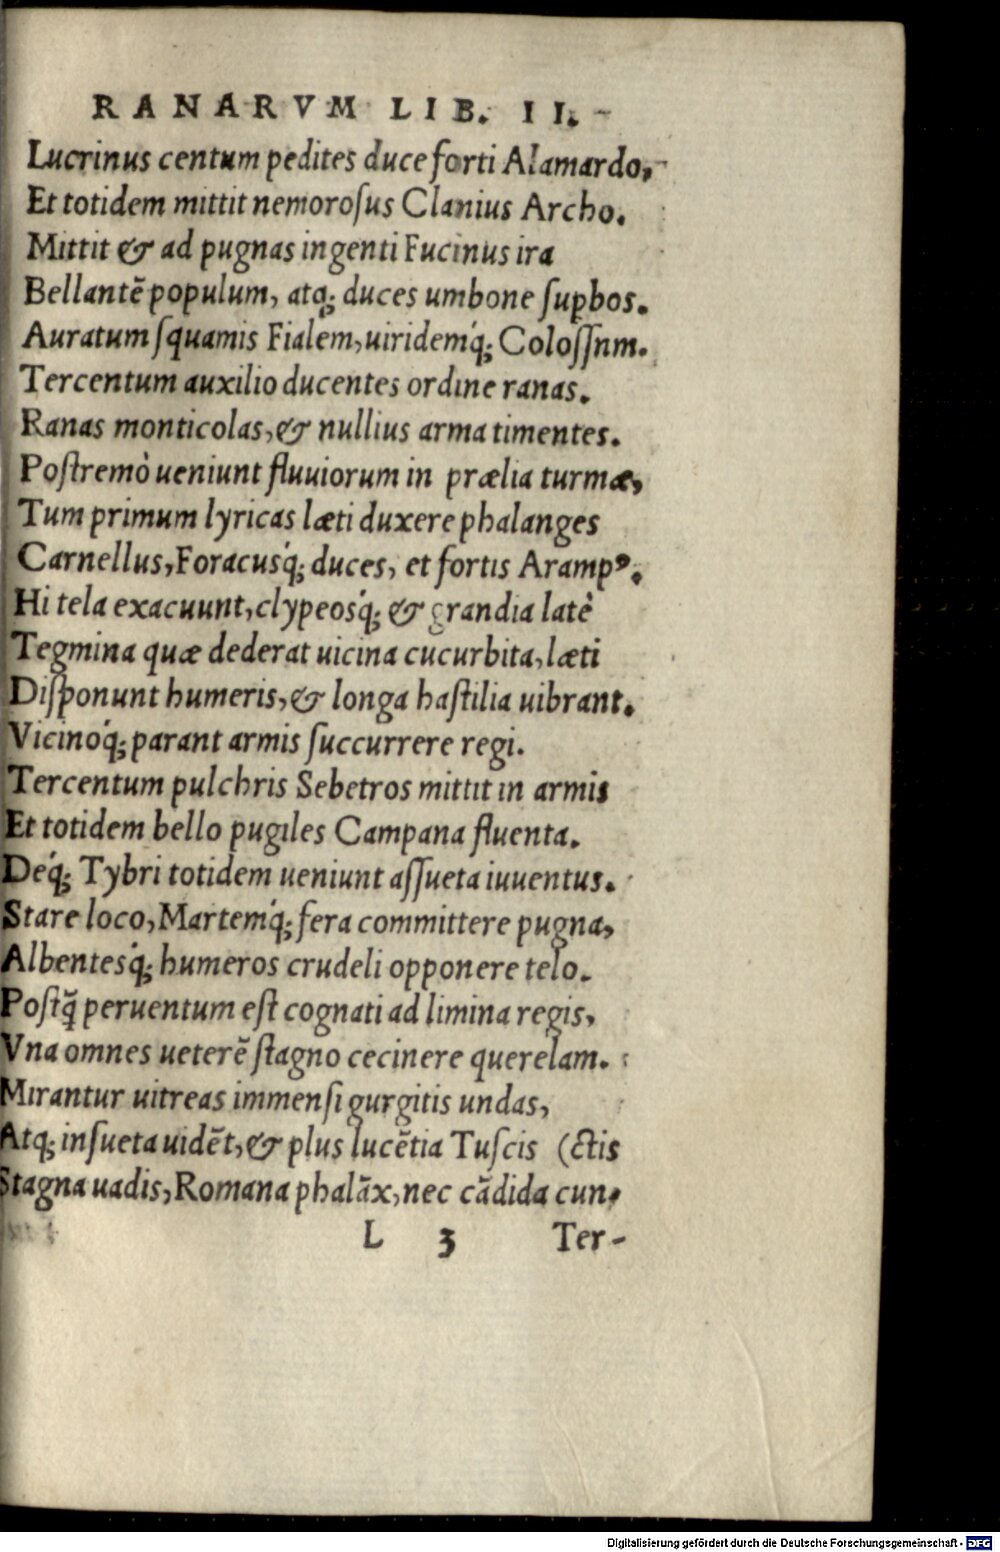 RANARVM LIB. II.
Lucrinus centum pedites duce forti Alamardo,
Et totidem mittit nemoroſus Clanius Archo.
Mittit & ad pugnas ingenti Fucinus ira
Bellantē populum, atq; duces umbone ſuꝑbos.
Auratum ſquamis Fialem, uiridemq́; Coloſſnm.
Tercentum auxilio ducentes ordine ranas.
Ranas monticolas, & nullius arma timentes.
Poſtremò ueniunt fluuiorum in prælia turmæ,
Tum primum lyricas læti duxere phalanges
Carnellus, Foracusq́; duces, et fortis Arampꝰ.
Hi tela exacuunt, clypeosq́; & grandia latè
Tegmina quæ dederat uicina cucurbita, læti
Diſponunt humeris, & longa haſtilia uibrant.
Vicinoq́; parant armis ſuccurrere regi.
Tercentum pulchris Sebetros mittit in armis
Et totidem bello pugiles Campana fluenta.
Deq́; Tybri totidem ueniunt aſſueta iuuentus.
Stare loco, Martemq́; fera committere pugna,
Albentesq́; humeros crudeli opponere telo.
Poſtq̃ peruentum eſt cognati ad limina regis,
Vna omnes ueterē ſtagno cecinere querelam.
Mirantur uitreas immenſi gurgitis undas,
Atq; inſueta uidēt, & plus lucētia Tuſcis (ctis
Stagna uadis, Romana phalāx, nec cādida cun-
L 3 Ter-
Digitalisierung gefördert durch die Deutsche Forschungsgemeinschaft - DFG